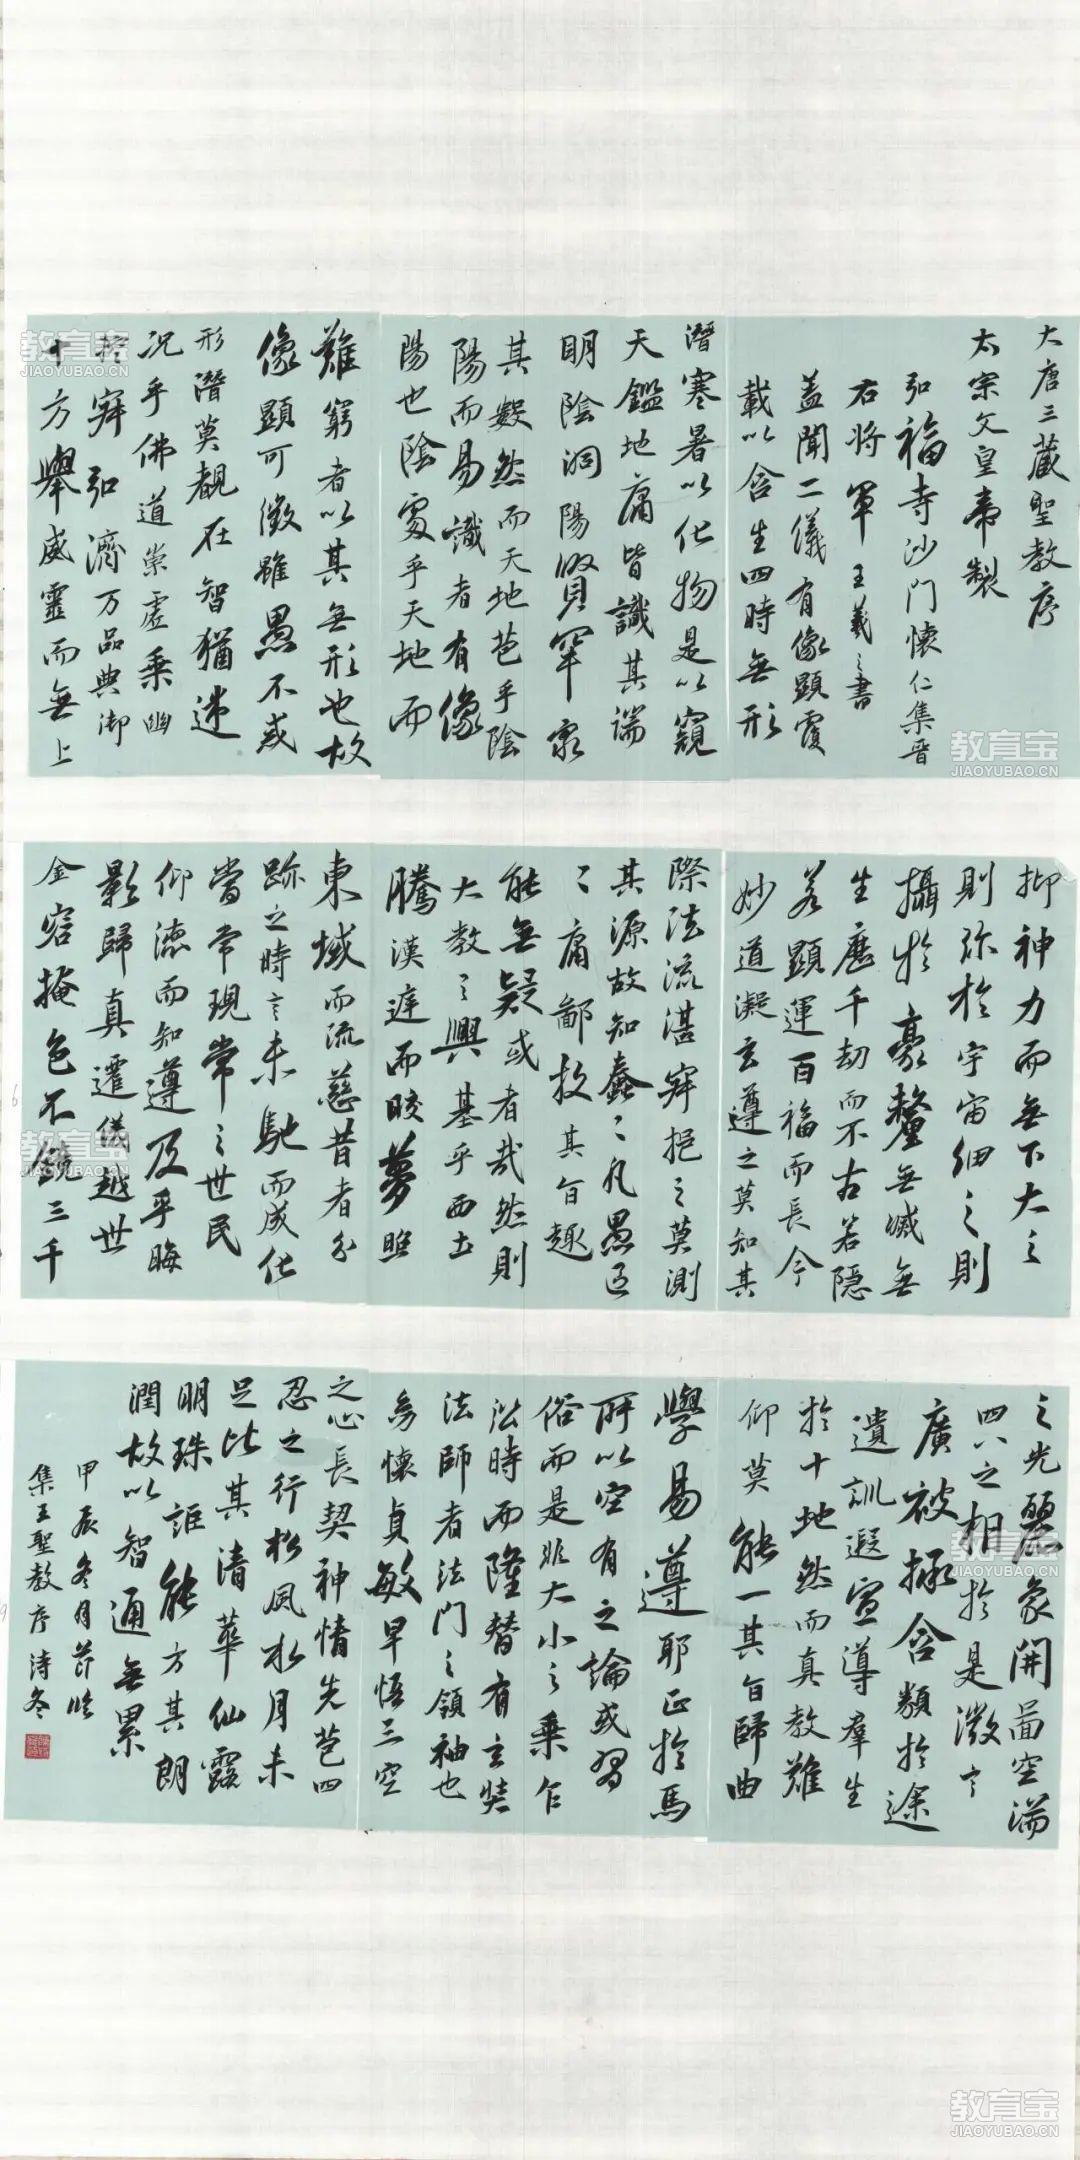 大唐三藏聖教序
太宗文皇帝製
弘福寺沙門懷仁集晉
右將軍王羲之書
蓋聞二儀有像顯覆
載以含生四時無形
潛寒暑以化物是以窺
天鑑地庸皆識其端
明陰洞陽賢罕窮
其數然而天地苞乎陰
陽而易識者有像
陽也陰處乎天地而
難窮者以其無形也故
像顯可徵雖愚不惑
形潛莫覩在智猶迷
況乎佛道崇虛乘幽
控寂弘濟萬品典御
十方舉威靈而無上
抑神力而無下大之
則彌於宇宙細之則
攝於豪釐無滅無
生歷千劫而不古若隱
若顯運百福而長今
妙道凝玄遵之莫知其
際法流湛寂挹之莫測
其源故知蠢々凡愚區
々庸鄙投其旨趣
能無疑或者哉然則
大教之興基乎西土
騰漢庭而皎夢照
東域而流慈昔者分
跡之時言未馳而成化
當常現常之世民
仰德而知遵及乎晦
影歸真遷儀越世
金容掩色不鏡三千
之光麗象開圖空端
四八之相於是微言
廣被拯含類於三途
遺訓遐宣導群生
於十地然而真教難
仰莫能一其旨歸曲
學易遵耶正於焉
所以空有之論或習
俗而是非大小之乘乍
沿時而隆替有玄奘
法師者法門之領袖也
幼懷貞敏早悟三空
之心長契神情先苞四
忍之行松風水月未
足比其清華仙露
明珠詎能方其朗
潤故以智通無累
甲辰冬月節臨
集王聖教序詩冬
教育宝
JIAOYUBAO.CN
教育宝
JIAOYUBAO.CN
教育宝
JIAOYUBAO.CN
教育宝
JIAOYUBAO.CN
教育宝
JIAOYUBAO.CN